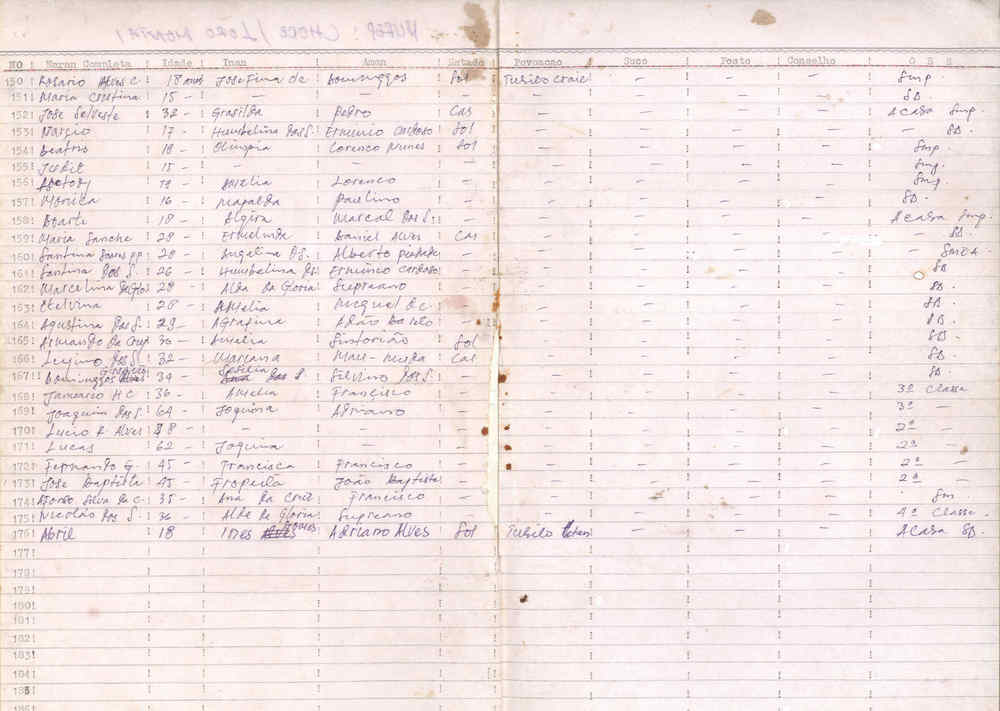 NO ! Naran Completa ! Idade ! Inan ! Aman ! Estado ! Povoacao ! Suco ! Posto ! Conselho ! O B S
150! Rosario Alves C. ! 18 anos ! Josefina de ! Dominggos ! Sol ! Tusilo ! — ! — ! — ! Smp
151! Maria Cristina ! 15 – ! — ! — ! — ! — ! — ! — ! — ! SD.
152! Jose Selveste ! 32 – ! Grasilda ! Pedro ! Cas ! — ! — ! — ! — ! A Casa Smp.
153! Narsio ! 17 – ! Humbelina Dos S. ! Ermenco Cardoso ! Sol ! — ! — ! — ! — ! — SD.
154! Beatris ! 18 – ! Olimpia ! Lorenco Nunes ! Sol ! — ! — ! — ! — ! Smp.
155! Judit ! 15 – ! — ! — ! — ! — ! — ! — ! — ! Smp.
156! ! – ! Amelia ! Lorenco ! — ! — ! — ! — ! — ! Smp.
157! Monica ! 16 – ! Mafalda ! Paulino ! — ! — ! — ! — ! — ! SD.
158! Duarte ! 18 – ! Algira ! Marcal Dos S. ! — ! — ! — ! — ! — ! A Casa Smp.
159! Maria Sanche ! 28 – ! Ermelinda ! Daniel Alves ! Cas ! — ! — ! — ! — ! — SD.
160! Santina ! 20 – ! Angelina DS. ! Alberto ! — ! — ! — ! — ! — ! SMEA.
161! Santina Dos S. ! 26 – ! Humbelina Ds. ! Ermenco Cardoso ! — ! — ! — ! — ! — ! SD
162! Marcelina ! 28 – ! Alda Da Gloria ! Supreano ! — ! — ! — ! — ! — ! SD.
163! Etelvina ! 28 – ! Amelia ! Miguel D.C. ! — ! — ! — ! — ! — ! SD.
164! Agustina Dos S. ! 29 – ! Agrafina ! Adão ! — ! — ! — ! — ! — ! SD.
165! Armando Da Cruz ! 30 – ! Amelia ! ! Sol ! — ! — ! — ! — ! SD.
166! Dos S. ! 32 – ! Mariana ! Mau-Meta ! Cas ! — ! — ! — ! — ! SD.
167! Domingos ! 34 – ! Dos S ! Silvino Dos S. ! — ! — ! — ! — ! — ! SD.
168! Januario H C ! 36 – ! Amelia ! Francisco ! — ! — ! — ! — ! — ! 3ª Classe
169! Joaquim Dos S. ! 64 – ! Joquina ! Adriano ! — ! — ! — ! — ! — ! 3ª —
170! Lucio R Alves ! 8 – ! — ! — ! — ! — ! — ! — ! — ! 2ª –
171! Lucas ! 62 – ! Joquina ! — ! — ! — ! — ! — ! — ! 2ª
172! Fernando G. ! 45 – ! Francisca ! Francisco ! — ! — ! — ! — ! — ! 2ª —
173! Jose Baptista ! 45 – ! ! João Baptista ! — ! — ! — ! — ! — ! 2ª —
174! Afonso Silva Da C. ! 35 – ! Ana Da Cruz ! Francisco ! — ! — ! — ! — ! — ! Sm.
175! Nicolão Dos S. ! 36 – ! Alda Da Gloria ! Supreano ! — ! — ! — ! — ! — ! 4ª Classe.
176! Abril ! 18 ! Ines Gomes ! Adriano Alves ! Sol ! Tusilo ! — ! — ! — ! A Casa SD.
177!
178!
179!
180!
181!
182!
183!
184!
185!